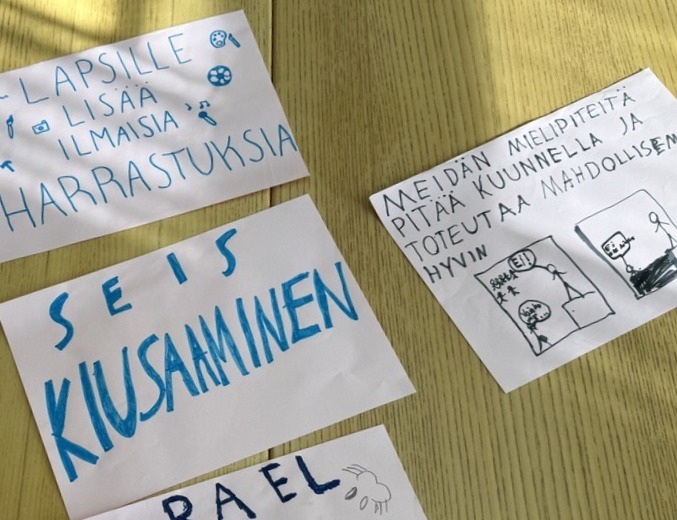 LAPSILLE
LISÄÄ
ILMAISIA
HARRASTUKSIA
MEIDÄN MIELIPITEITÄ
PITÄÄ KUUNNELLA JA
TOTEUTAA MAHDOLLISEM
HYVIN
EI!
SEIS
KIUSAAMINEN
RAEL